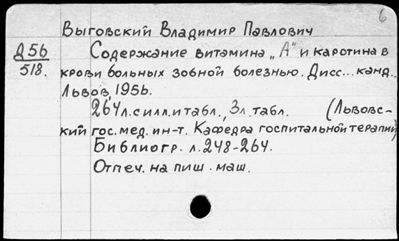 6
Выговский Владимир Павлович
Д56 Содержание витамина „А" и каротина в
518. крови больных зобной болезнью. Дисс... канд..
Львов, 1956.
264л. с илл. и табл., 3л. табл. (Львовс-
кий гос. мед. ин-т. Кафедра госпитальной терапии)
Библиогр. л. 248-264.
Отпеч. на пиш. маш.